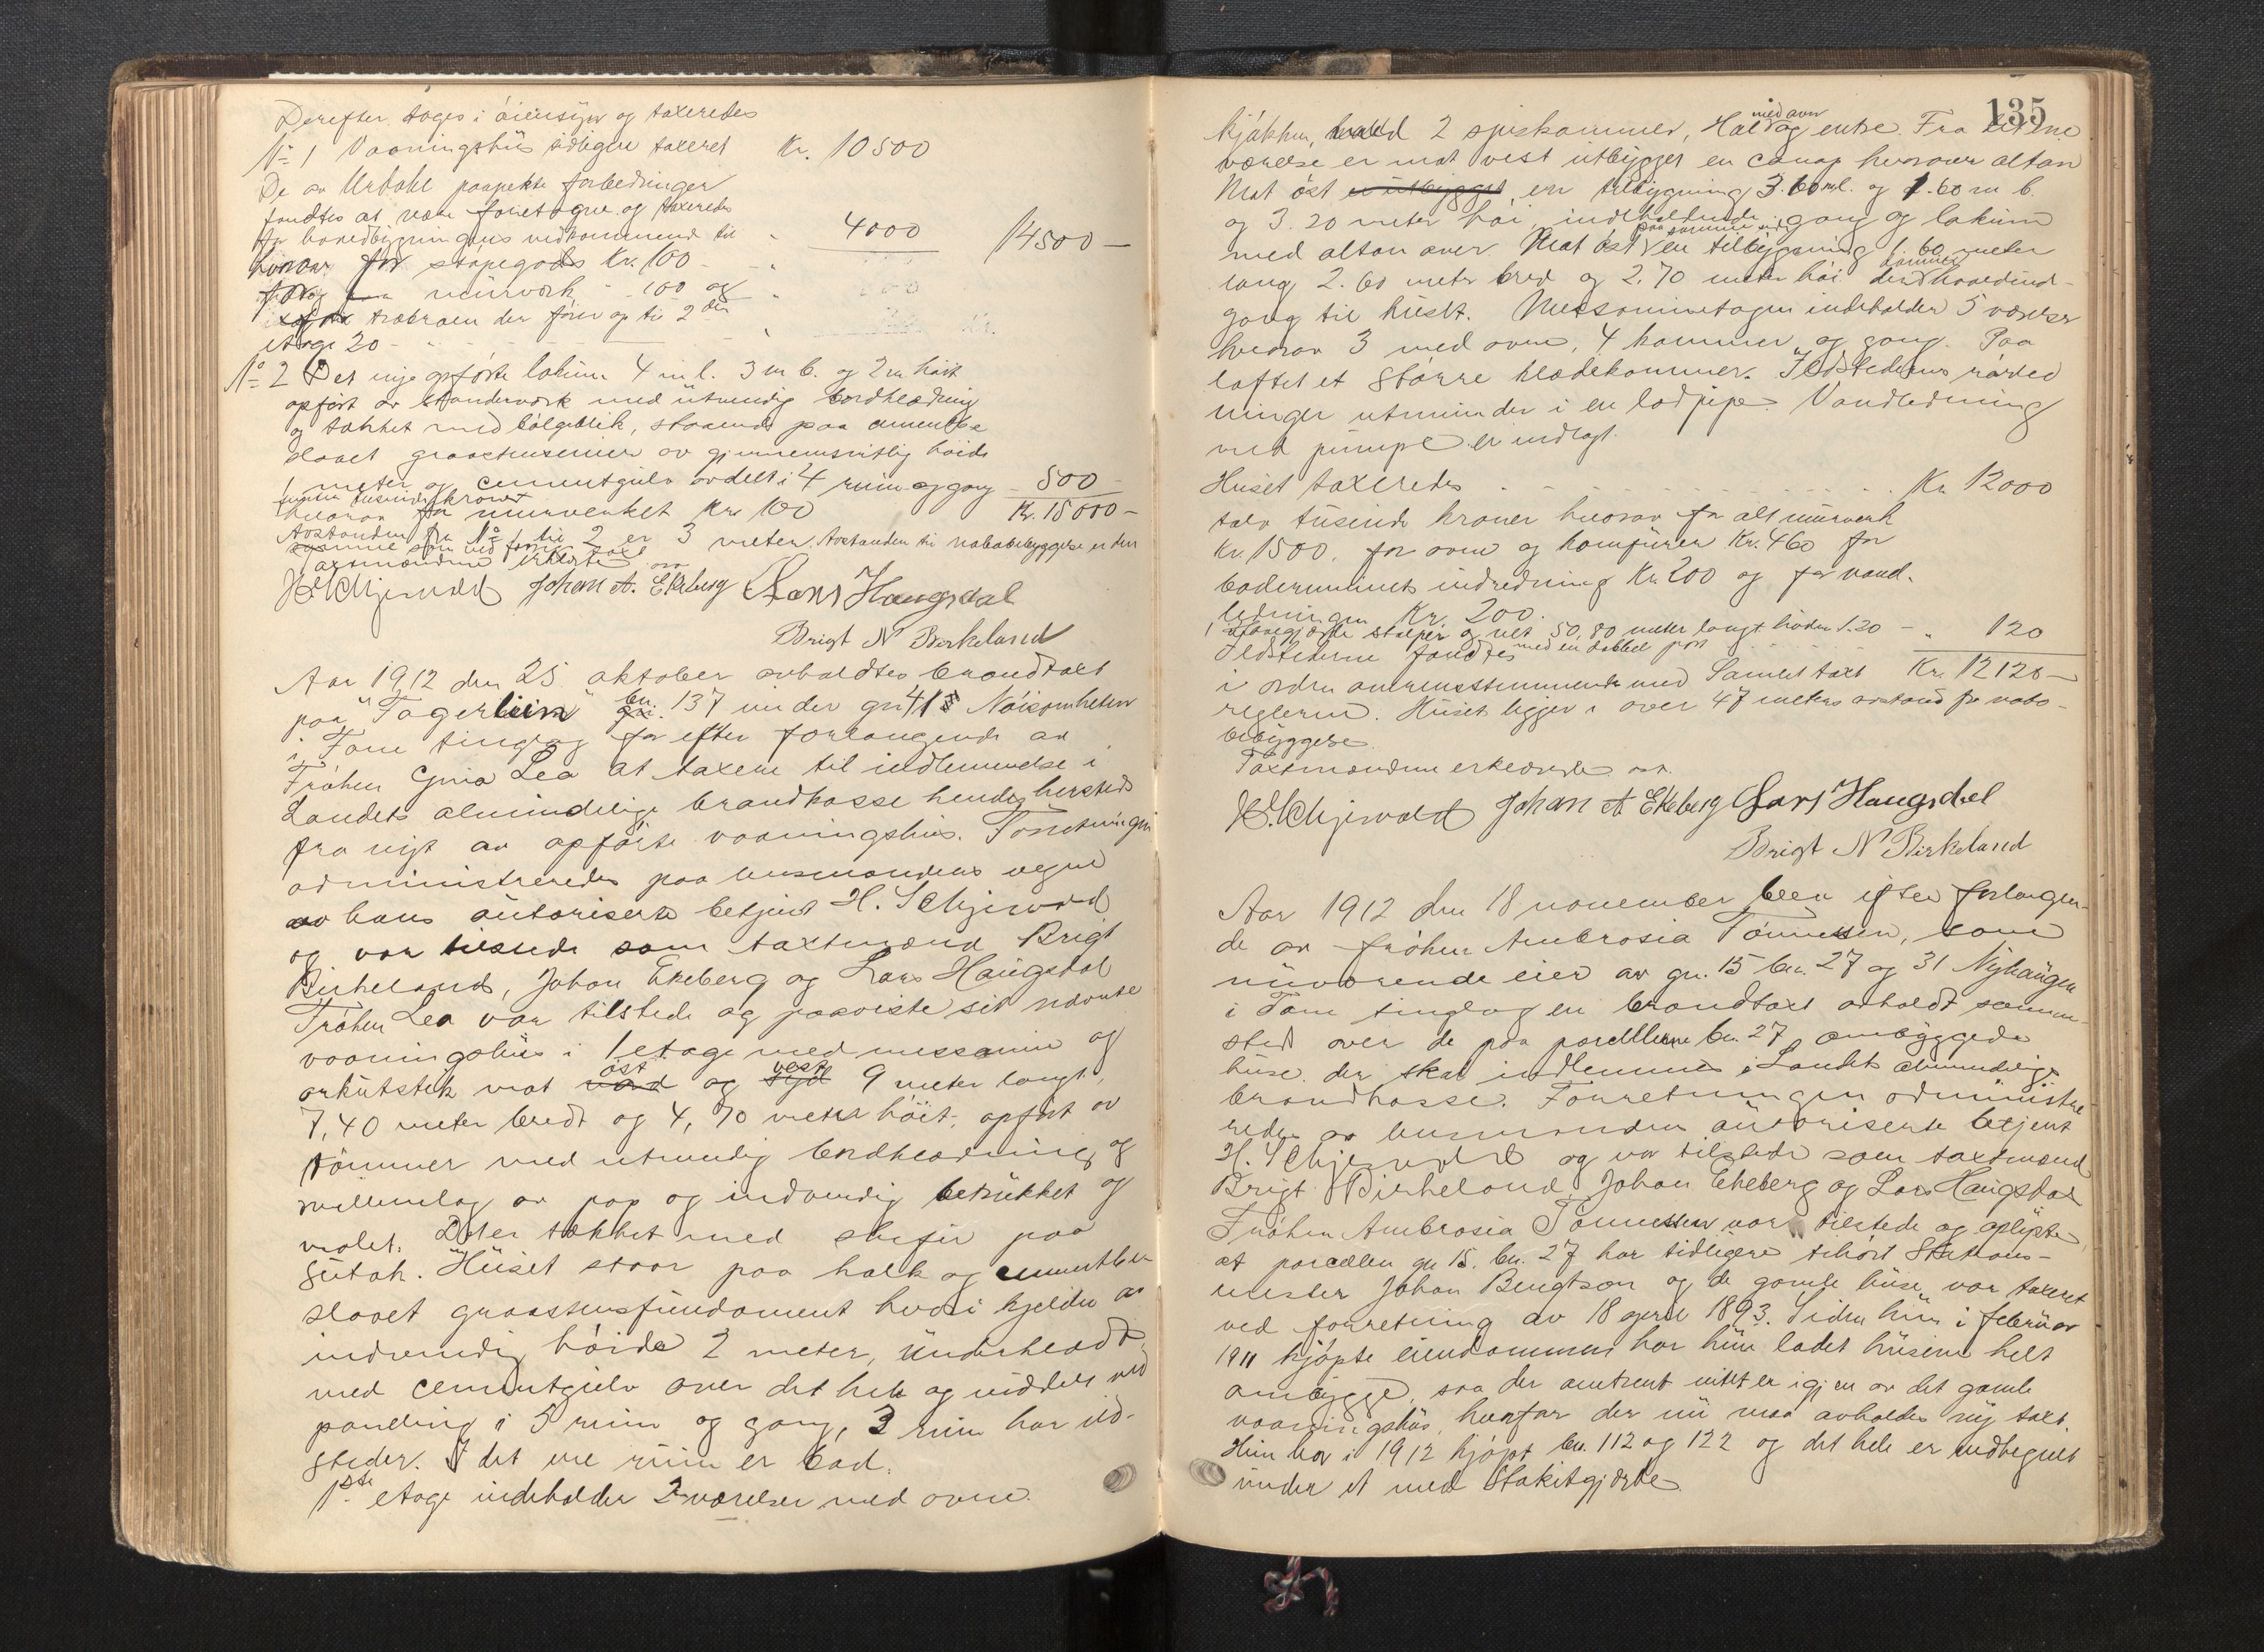 Derefter toges i øiensyn og taxeredes
No 1 Vaaningshus tidligere taxeret Kr. 10500
De av Urdahl paapekte forbedringer
fandtes at være foretagne og taxeredes
for hovedbygningens vedkommende til " 4000 14500 -
hvorav for støpegods Kr. 100 -
for murverk - 100 og
for trætraen der fører op til 2den
etage 20 -
No 2 Det nye opførte lokum 4 m l. 3 m b. og 2 m høit
opført av standerverk med utvendig bordklædning
og tækket med bølgeblik, staaende paa cementbe
slaaet graastensmur av gjennemsnitlig høide
1 meter og cementgulv avdelt i 4 rum og gang - 500 -
femten tusinde kroner Kr. 15000 -
hvorav for murverket Kr. 100
Avstanden fra No 1 til 2 er 3 meter. Avstanden til nabobebyggelse er den
samme som ved forrige taxt
Taxtmændene erklærte osv
H. Schjervold Johan A. Ekeberg Lars Haugsdal
Brigt N Birkeland
Aar 1912 den 25 oktober avholdtes brandtaxt
paa "Fagerliin" bn. 137 under gn 41 Nøisomheten
i Fane tinglag for efter forlangende av
Frøken Gina Lea at taxere til indlemmelse i
Landets almindelige brandkasse hendes hersteds
fra nyt av opførte vaaningshus. Forretningen
administreredes paa lensmandens vegne
av hans autoriserte betjent H. Schjervold
og var tilstede som taxtmænd Brigt
Birkeland, Johan Ekeberg og Lars Haugsdal
Frøken Lea var tilstede og paaviste sit
vaaningshus i 1 etage med messanin og
arkutstik mot øst og vest 9 meter langt,
7,40 meter bredt og 4,70 meter høit, opført av
tømmer med utvendig bordklædning og
mellemlag av pap og indvendig betrukket og
malet. Det er tækket med skifer paa
sutak. Huset staar paa kalk og cementbe
slaaet graastensfundament hvori kjelder av
indvendig høide 2 meter, underkladt
med cementgulv over det hele og inddelt ved
paneling i 5 rum og gang, 3 rum har ild-
steder. I det ene rum er bad.
1ste etage indeholder 2 værelser med ovne.
135
kjøkken, 2 spiskammer, Hal med ovn og entre. Fra det ene
værelse er mot vest utbygget en carnap hvorover altan
Mot øst er utbygget en tilbygning 3.60 m l. og 1.60 m b.
og 3.20 meter høi indeholdende gang og lokum
med altan over. Mot øst paa samme side en tilbygning 1.60 meter
lang 2.60 meter bred og 2.70 meter høi der danner hovedind-
gang til huset. Messaninetagen indeholder 5 værelser
hvorav 3 med ovne, 4 kammer og gang. Paa
loftet et større klædekammer. Ildstedernes rørled
ninger utmunder i en lodpipe. Vandledning
med pumpe er indlagt.
Huset taxeredes Kr. 12000
tolv tusinde kroner hvorav for alt murverk
Kr. 1500, for ovne og komfurer Kr. 460 for
baderummets indredning Kr. 200 og for vand-
ledningen Kr. 200.
stolper og net 50,80 meter langt høiden 1.20 - " 120
med en dobbelt port
Ildstederne fandtes
i orden overensstemmende med Samlet taxt Kr. 12120 -
reglerne. Huset ligger i over 47 meters avstand fra nabo-
bebyggelse.
Taxtmændene erklærede osv.
H. Schjervold Johan A Ekeberg Lars Haugsdal
Brigt N Birkeland
Aar 1912 den 18 november blev efter forlangen-
de av frøken Ambrosia Tønnesen, som
nuværende eier av gn. 15 bn. 27 og 31 Nyhaugen
i Fane tinglag en brandtaxt avholdt samme-
sted over de paa parcellerne bn. 27 ombyggede
huse der skal indlemmes i Landets almindelige
brandkasse. Forretningen administre-
redes av lensmandens autoriserte betjent
H. Schjervold og var tilstede som taxtmænd
Brigt Birkeland, Johan Ekeberg og Lars Haugsdal
Frøken Ambrosia Tønnesen var tilstede og oplyste
at parcellen gn 15. bn. 27 har tidligere tilhørt Stations-
mester Johan Bengtson og de gamle huse var taxeret
ved forretning av 18 april 1893. Siden hun i februar
1911 kjøpte eiendommen har hun ladet husene helt
ombygge, saa der omtrent intet er igjen av det gamle
vaaningshus, hvorfor der nu maa avholdes ny taxt.
Hun har i 1912 kjøpt bn. 112 og 122 og det hele er indhegnet
under et med Stakitgjærde